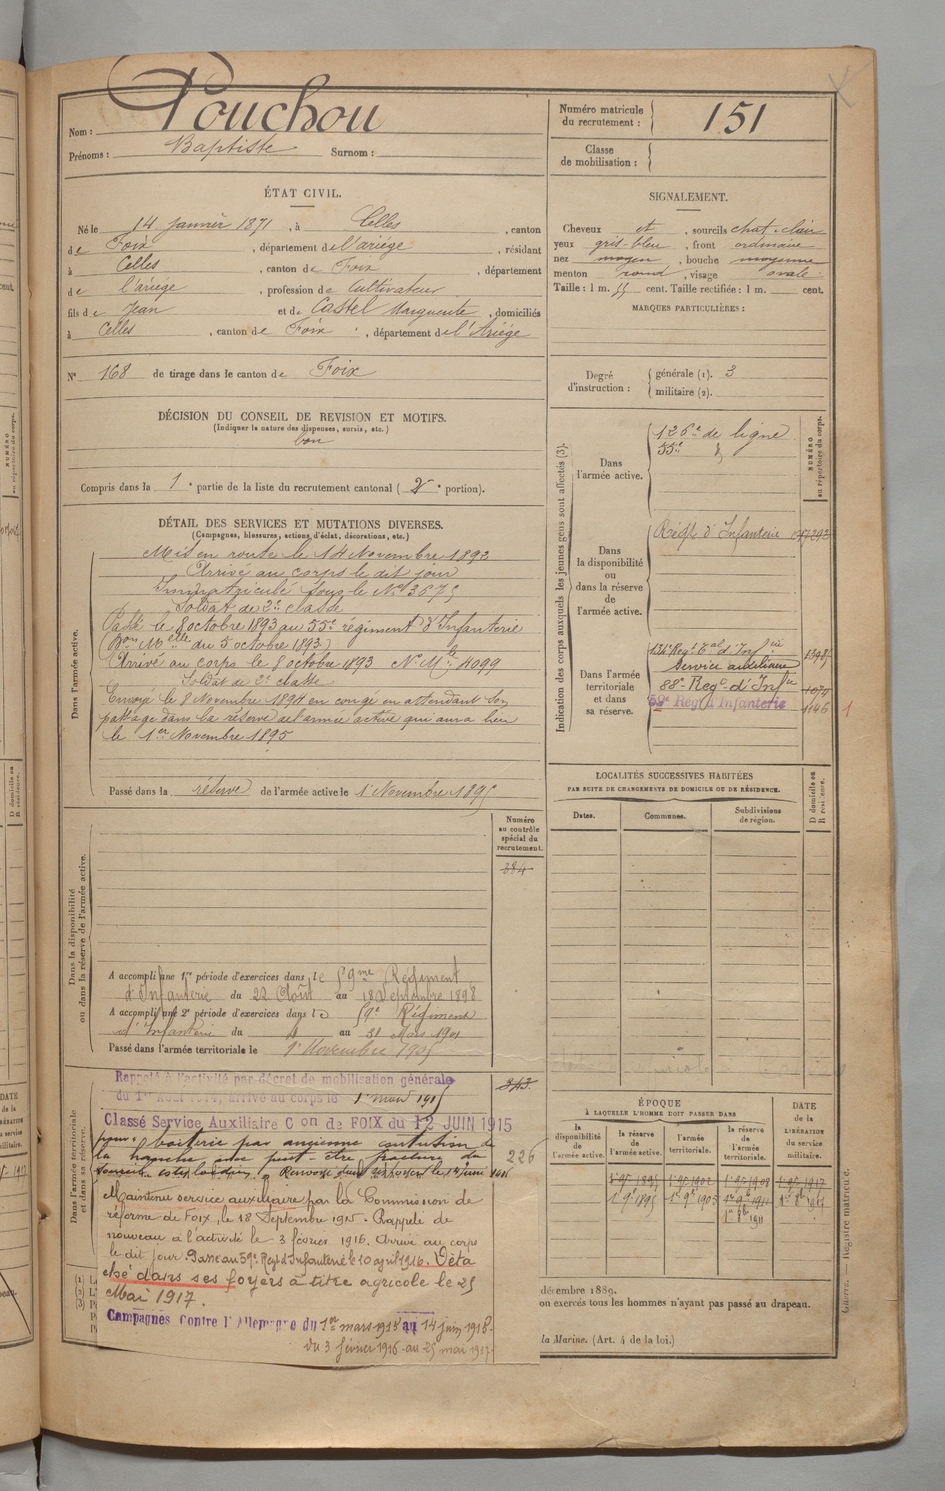 Nom : Pouchou
Prénoms : Baptiste Surnom :
Numéro matricule du recrutement : 151
Classe de mobilisation :
ÉTAT CIVIL.
Né le 14 janvier 1871, à Celles, canton
de Foix, département de l'ariége, résidant
à Celles, canton de Foix, département
de l'ariége, profession de cultivateur
fils de Jean et de Castel Marguerite, domiciliés
à Celles, canton de Foix, département de l'Ariége
N° 168 de tirage dans le canton de Foix
SIGNALEMENT.
Cheveux et, sourcils chat-clair
yeux gris-bleu, front ordinaire
nez moyen, bouche moyenne
menton rond, visage ovale
Taille : 1 m. 55 cent. Taille rectifiée : 1 m. cent.
MARQUES PARTICULIÈRES :
Degré d'instruction :
générale (1). 3
militaire (2).
DÉCISION DU CONSEIL DE REVISION ET MOTIFS.
(Indiquer la nature des dispenses, sursis, etc.)
bon
Compris dans la 1e partie de la liste du recrutement cantonal (2e portion).
DÉTAIL DES SERVICES ET MUTATIONS DIVERSES.
(Campagnes, blessures, actions d'éclat, décorations, etc.)
Dans l'armée active.
Mis en route le 14 Novembre 1892
Arrivé au corps le dit jour
Immatriculé sous le N° 3675
Soldat de 2e classe
Passé le 8 octobre 1893 au 55e régiment d'Infanterie
(Don Melle du 5 octobre 1893)
Arrivé au corps le 8 octobre 1893 N° Mle 4099
Soldat de 2e classe
Envoyé le 8 Novembre 1894 en congé en attendant son
passage dans la réserve de l'armée active qui aura lieu
le 1er Novembre 1895
Passé dans la réserve de l'armée active le 1 Novembre 1895
Indication des corps auxquels les jeunes gens sont affectés (3).
NUMÉRO au répertoire du corps.
Dans l'armée active.
126e de ligne
55e
Dans la disponibilité ou dans la réserve de l'armée active.
Régt d'Infanterie
Dans l'armée territoriale et dans sa réserve.
Service auxiliaire
88e Regt d'Infie 1070
59e Reg d'Infanterie 1146
1
LOCALITÉS SUCCESSIVES HABITÉES
PAR SUITE DE CHANGEMENTS DE DOMICILE OU DE RÉSIDENCE.
Dates. Communes. Subdivisions de région. D domicile ou R résidence.
Dans la disponibilité ou dans la réserve de l'armée active.
Numéro au contrôle spécial du recrutement.
384
A accompli une 1re période d'exercices dans le 59me Régiment
d'Infanterie du 22 Août au 18 Septembre 1898
A accompli une 2e période d'exercices dans le 59e Régiment
d'Infanterie du 4 au 31 Mars 1901
Passé dans l'armée territoriale le 1er Novembre 1905
Dans l'armée territoriale et dans sa réserve.
343
Rappelé à l'activité par décret de mobilisation générale
du 1er Août 1914, arrivé au corps le 1er mars 1915
Classé Service Auxiliaire Con de FOIX du 12 JUIN 1915
pour : boiterie par ancienne contusion de
la hanche avec peut-être fracture du
226
Maintenu service auxiliaire par la Commission de
réforme de Foix, le 18 Septembre 1915. Rappelé de
nouveau à l'activité le 3 février 1916. Arrivé au corps
le dit jour. Passé au 59e Regt d'Infanterie le 10 avril 1916. Déta
ché dans ses foyers à titre agricole le 25
Mai 1917.
Campagnes Contre l'Allemagne du 1er mars 1915 au 14 juin 1915.
du 3 février 1916 au 25 mai 1917
ÉPOQUE
À LAQUELLE L'HOMME DOIT PASSER DANS
la disponibilité de l'armée active. la réserve de l'armée active. l'armée territoriale. la réserve de l'armée territoriale.
DATE de la LIBÉRATION du service militaire.
décembre 1889.
on exercés tous les hommes n'ayant pas passé au drapeau.
la Marine. (Art. 4 de la loi.)
Guerre. — Registre matricule.